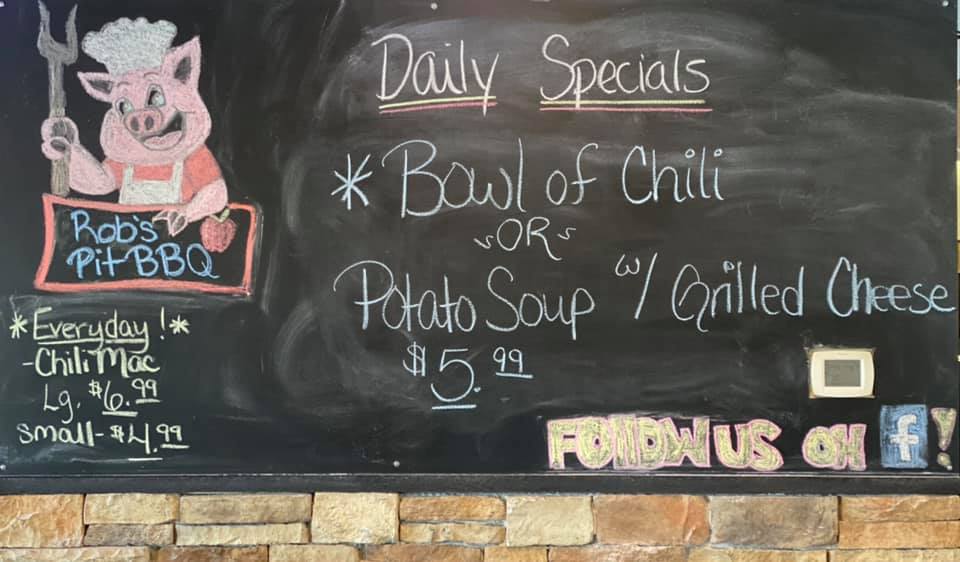 Daily Specials
* Bowl of Chili
~OR~
Potato Soup w/ Grilled Cheese
$5.99
Rob's
Pit BBQ
*Everyday!*
-Chili Mac
Lg. $6.99
small - $4.99
FOLLOW US ON f!